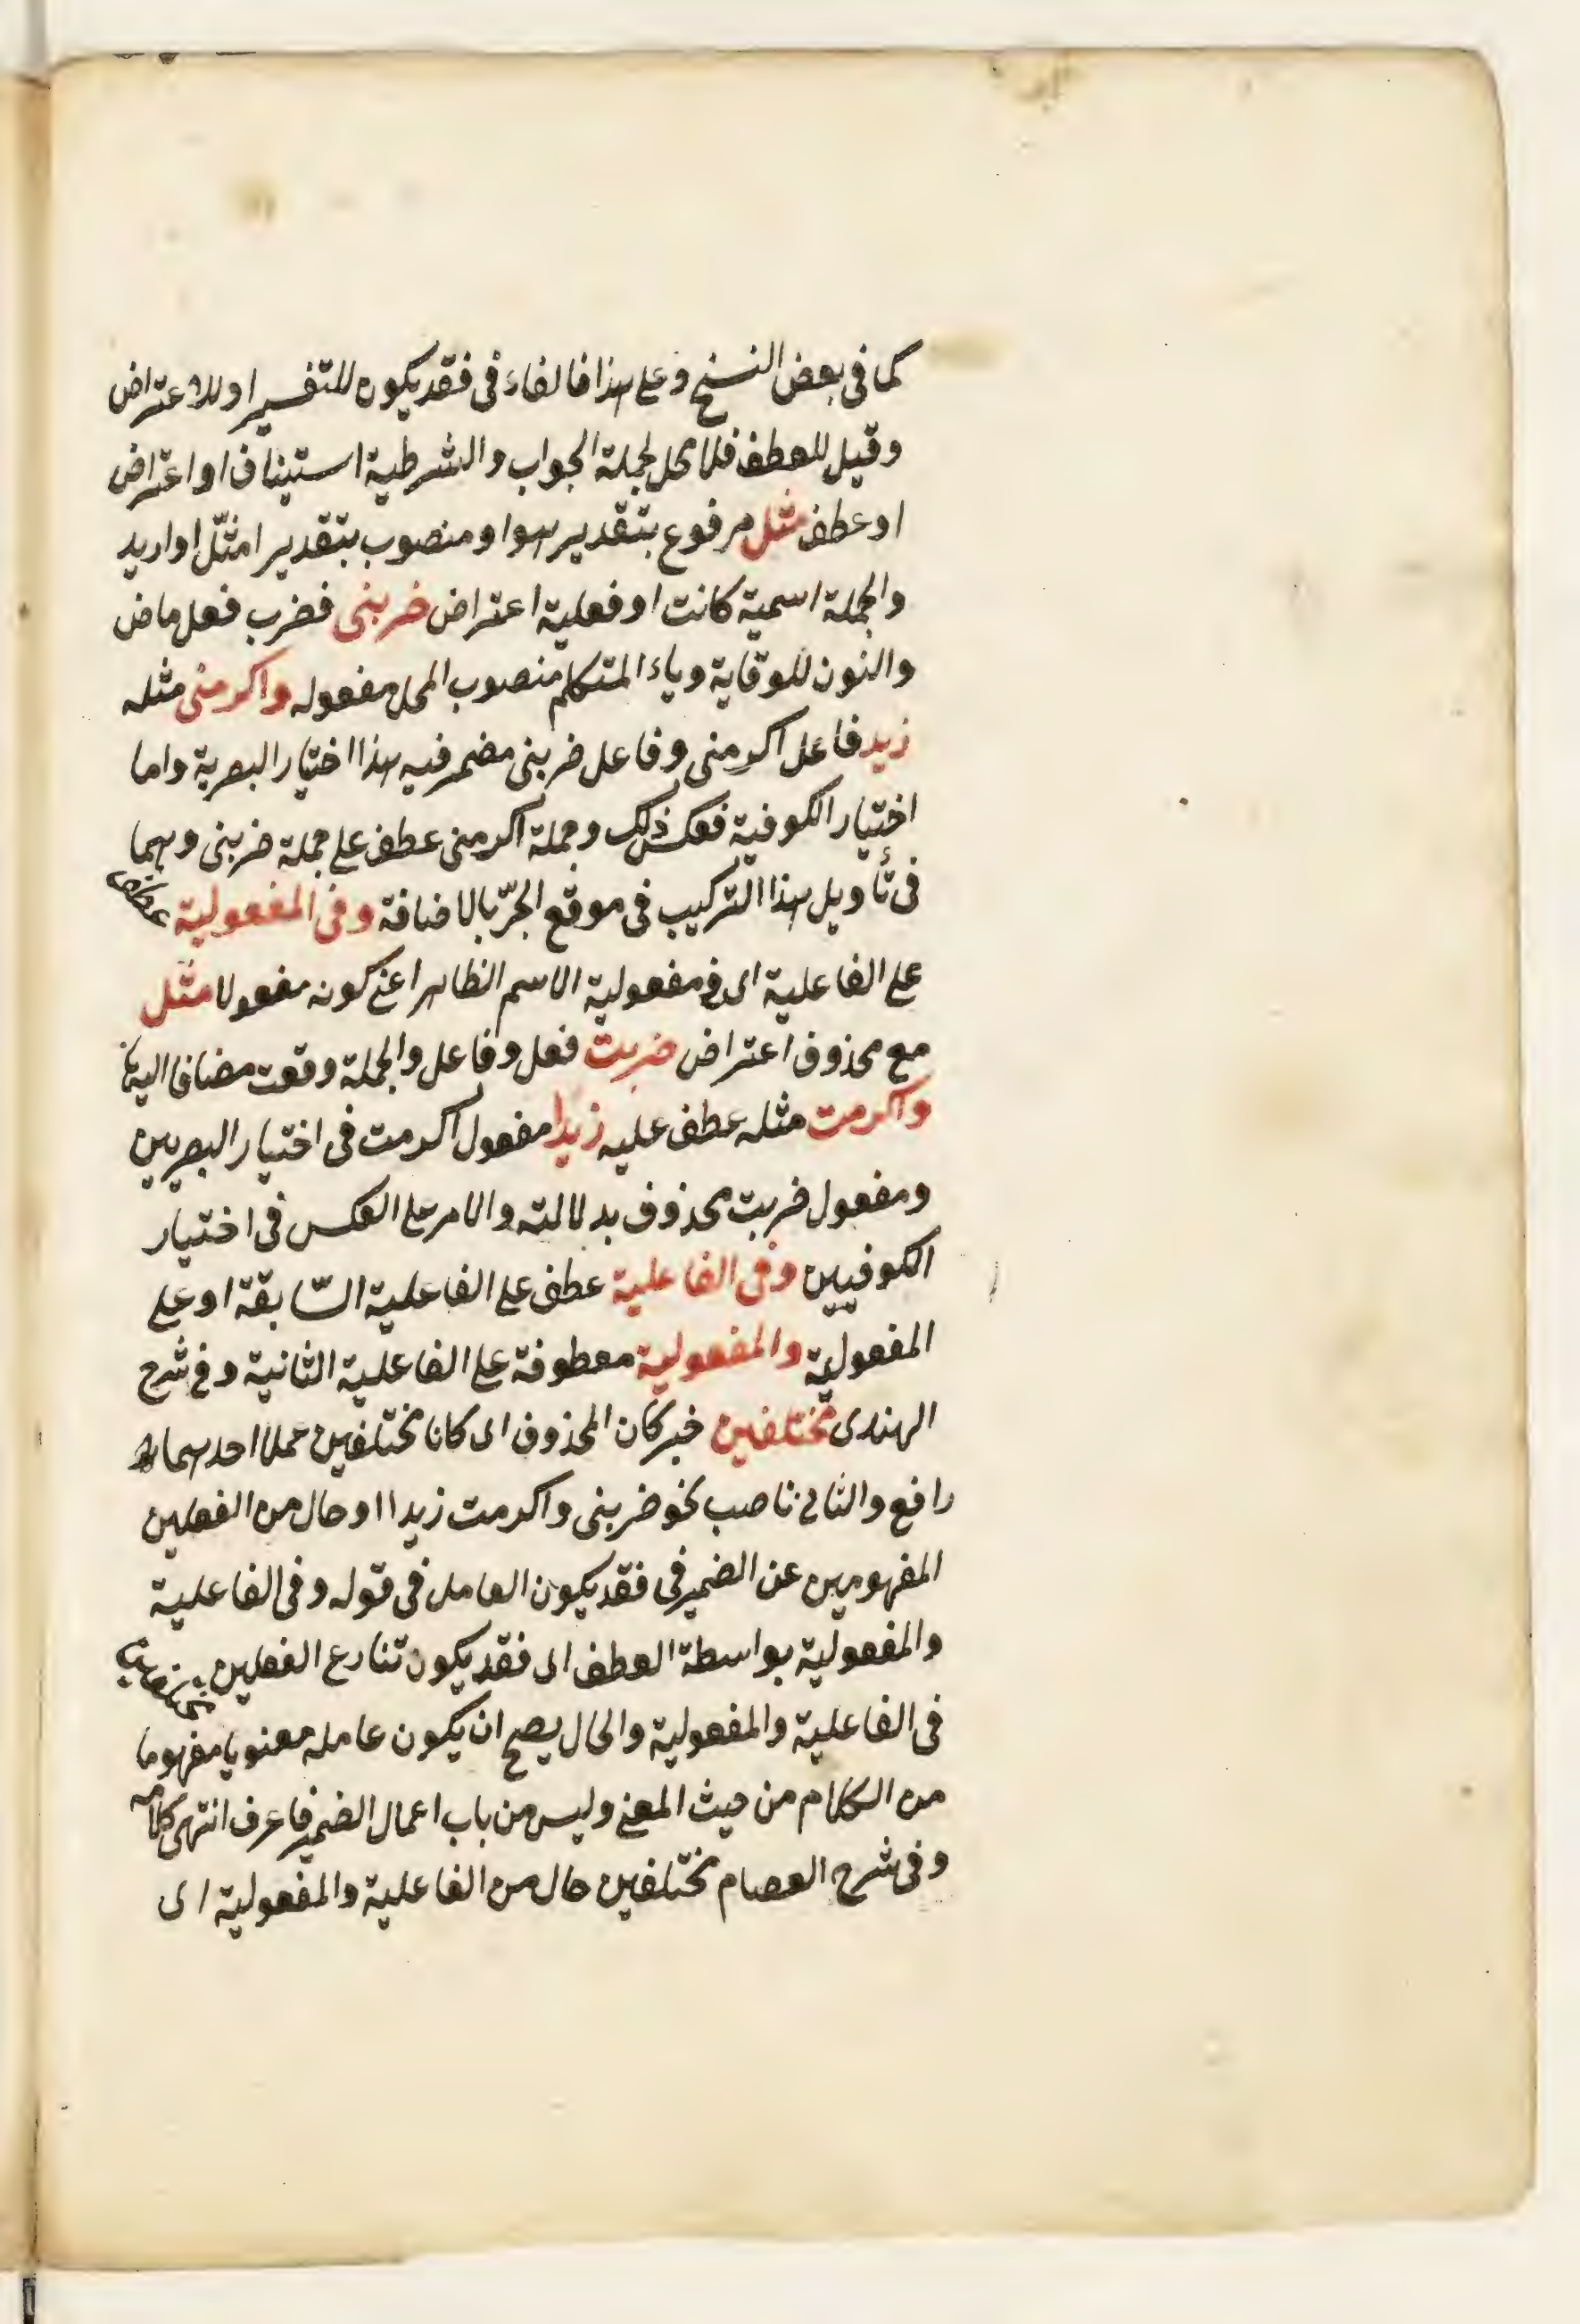 كما في بعض النسخ وعلى هذا فالفاء في فقد يكون للتفسير او للاعتراض
وقيل للعطف فلا محل لجملة الجواب والشرطية استيناف او اعتراض
او عطف مثل مرفوع بتقدير هو او منصوب بتقدير امثّل او اريد
والجملة اسمية كانت او فعلية اعتراض ضربنى فضرب فعل ماض
والنون للوقاية وياء المتكلم منصوب المحل مفعوله واكرمنى مثله
زيد فاعل اكرمنى وفاعل ضربنى مضمر فيه هذا اختيار البصرية واما
اختيار الكوفية فعكس ذلك وجملة اكرمنى عطف على جملة ضربنى وهما
فى تأويل هذا التركيب فى موقع الجرّ بالاضافة وفى المفعولية عطف
على الفاعلية اى فى مفعولية الاسم الظاهر اعنى كونه مفعولا مثل
مع محذوف اعتراض ضربت فعل وفاعل والجملة وقعت مضافا اليها
واكرمت مثله عطف عليه زيدا مفعول اكرمت فى اختيار البصريين
ومفعول ضربت محذوف بدلالته والامر على العكس فى اختيار
الكوفيين وفى الفاعلية عطف على الفاعلية السّابقة او على
المفعولية والمفعولية معطوفة على الفاعلية الثانية وفى شرح
الهندى مختلفين خبر كان المحذوف اى كانا مختلفين عملا احدهما
رافع والثانى ناصب نحو ضربنى واكرمت زيدا او حال من الفعلين
المفهومين عن الضمير فى فقد يكون العامل فى قوله وفى الفاعلية
والمفعولية بواسطة العطف اى فقد يكون تنازع الفعلين
فى الفاعلية والمفعولية والحال يصح ان يكون عامله معنويا مفهوما
من الكلام من حيث المعنى وليس من باب اعمال الضمير فاعرف انتهى كلامه
وفى شرح العصام مختلفين حال من الفاعلية والمفعولية اى